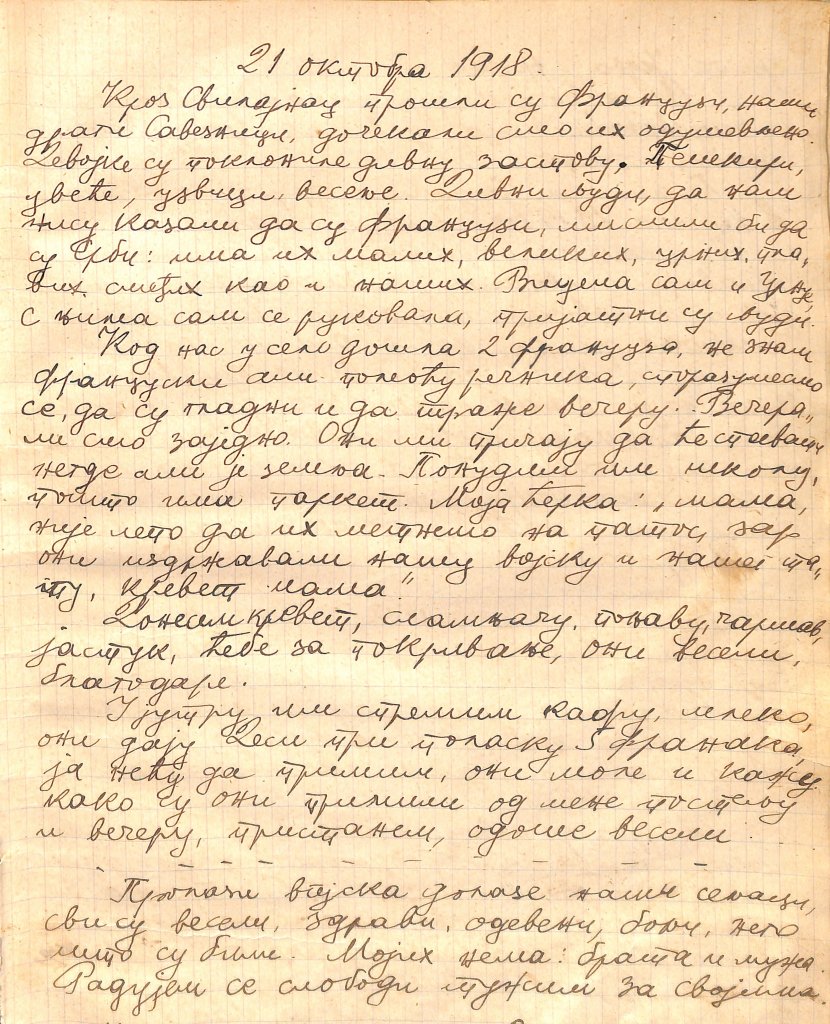 21 октобра 1918.
Кроз Свилајнац прошли су Французи, наши
драги Савезници, дочекали смо их одушевљено.
Девојке су поклониле дивну заставу. Пешкири,
цвеће, узвици, весеље. Дивни људи, да нам
нису казали да су Французи, мислили би да
су Срби: има их малих, великих, црних, пла„
вих смеђих као и наших. Видела сам и Црнце,
с њима сам се руковала, пријатни су људи.
Код нас у село дошла 2 француза, не знам
француски али помоћу речника, споразумесмо
се, да су гладни и да траже вечеру. Вечера„
ли смо заједно. Они ми причају да ће спавати
негде али је земља. Понудим им школу,
пошто има паркет. Моја ћерка: „мама,
није лепо да их метнемо на патос, зар
они издржавали нашу војску и нашег та„
ту, кревет мама."
Донесем кревет, сламњачу, поњаву, чаршав,
јастук, ћебе за покривање, они весели,
благодаре.
Ујутру им спремим кафу, млеко,
они дају Деси при поласку 5 франака,
ја нећу да примим, они моле и кажу
како су они примили од мене постељу
и вечеру, пристанем, одоше весели.
Пролази војска долазе наши сељаци,
сви су весели, здрави, одевени, бољи, него
што су били. Мојих нема: брата и мужа.
Радујем се слободи тужим за својима.